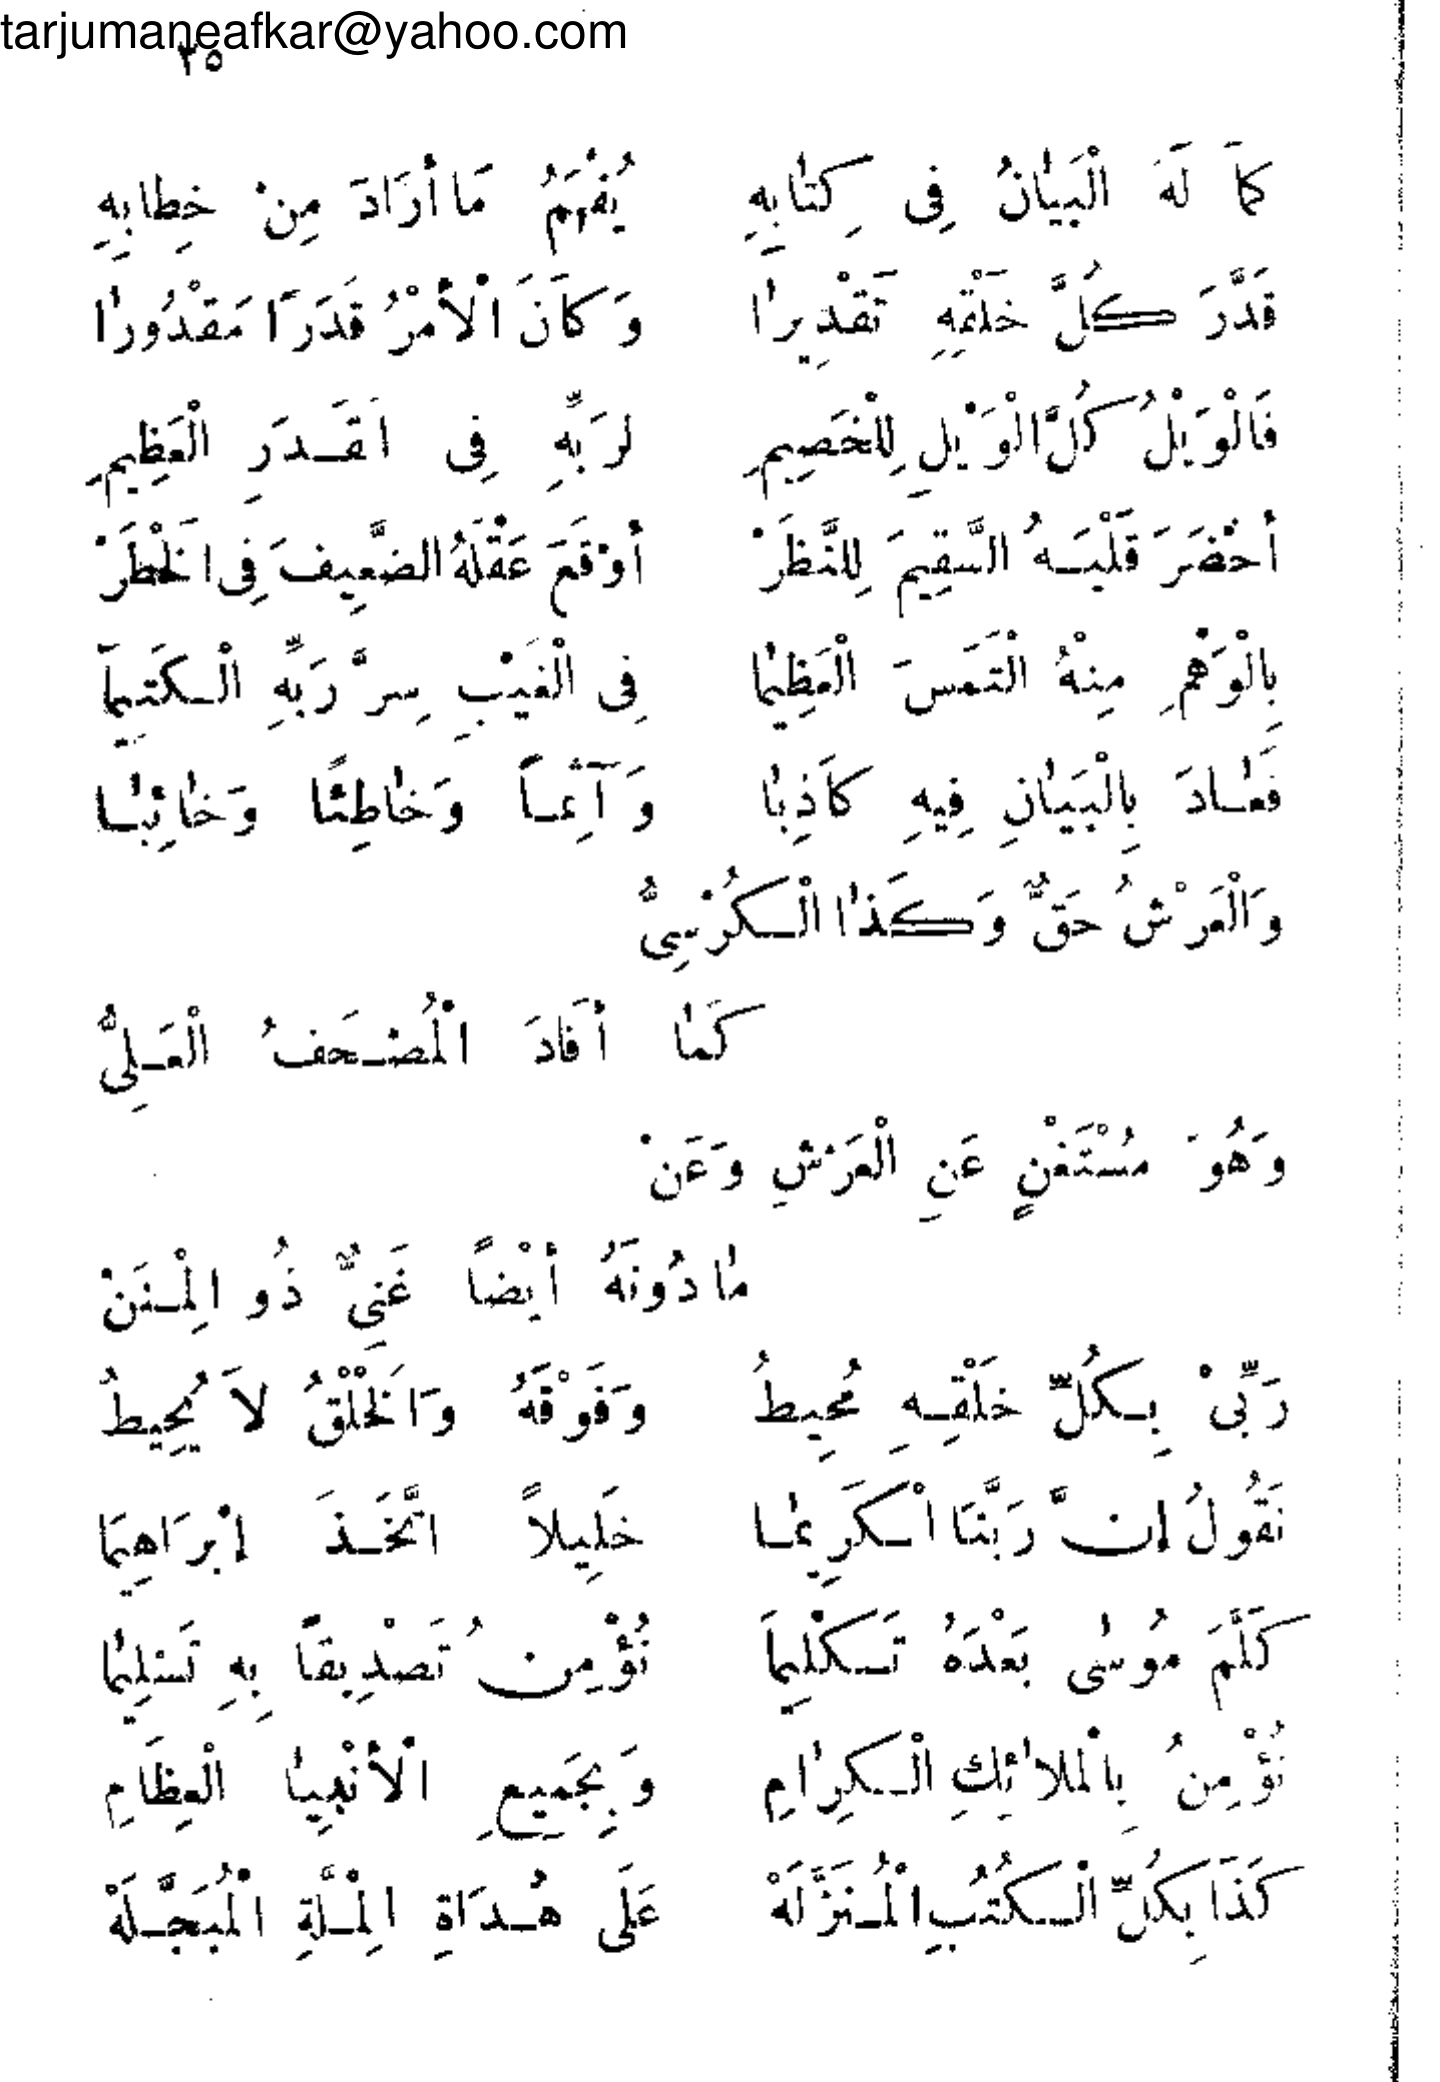 tarjumaneafkar@yahoo.com
٣٥
كمَا لَهُ الْبَيَانُ فِى كِتَابِهِ يُفْهَمُ مَا أَرَادَ مِنْ خِطابِهِ
قَدَّرَ كُلَّ خَلْقِهِ تَقْدِيرًا وَكَانَ الْأَمْرُ قَدَرًا مَقْدُورًا
فَالْوَيْلُ كُلَّ الْوَيْلِ لِلْخَصِيمِ لِرَبِّهِ فِى الْقَدَرِ الْعَظِيمِ
أَحْضَرَ قَلْبَهُ السَّقِيمَ لِلنَّظَرْ أَوْقَعَ عَقْلَهُ الضَّعِيفَ فِى الْخَطَرْ
بِالْوَهْمِ مِنْهُ الْتَمَسَ الْعَظِيمَا فِى الْغَيْبِ سِرَّ رَبِّهِ الْكَتِيمَا
فَعَادَ بِالْبَيَانِ فِيهِ كَاذِبًا وَآثِمًا وَخَاطِئًا وَخَائِبًا
وَالْعَرْشُ حَقٌّ وَكَذَا الْكُرْسِىُّ
كَمَا أَفَادَ الْمُصْحَفُ الْعَلِىُّ
وَهُوَ مُسْتَغْنٍ عَنِ الْعَرْشِ وَعَنْ
مَا دُونَهُ أَيْضًا غَنِىٌّ ذُو الْمِنَنْ
رَبِّىْ بِكُلِّ خَلْقِهِ مُحِيطُ وَفَوْقَهُ وَالْخَلْقُ لَا يُحِيطُ
نَقُولُ إِنَّ رَبَّنَا الْكَرِيمَا خَلِيلاً اتَّخَذَ إِبْرَاهِيمَا
كَلَّمَ مُوسٰى بَعْدَهُ تَكْلِيمَا نُؤْمِنُ تَصْدِيقًا بِهِ تَسْلِيمًا
نُؤْمِنُ بِالْمَلائِكِ الْكِرَامِ وَبِجَمِيعِ الْأَنْبِيَا الْعِظَامِ
كَذَا بِكُلِّ الْكُتُبِ الْمُنَزَّلَهْ عَلَى هُدَاةِ الْمِلَّةِ الْمُبَجَّلَهْ